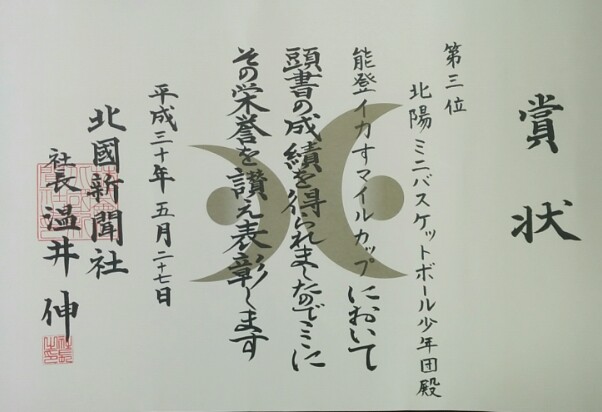 賞状
第三位
北陽ミニバスケットボール少年団殿
能登イカすマイルカップにおいて
頭書の成績を得られましたのでここに
その栄誉を讃え表彰します
平成三十年五月二十七日
北國新聞社
社長 温井伸